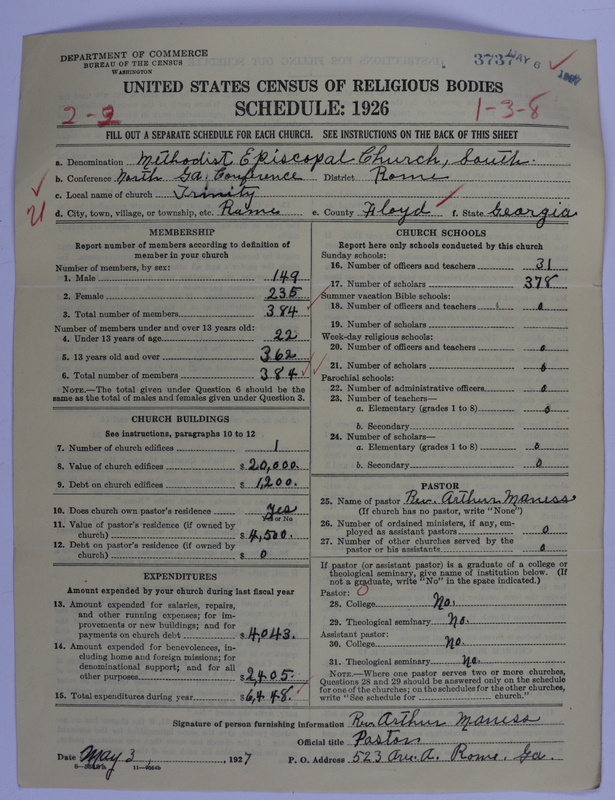 DEPARTMENT OF COMMERCE
BUREAU OF THE CENSUS
WASHINGTON
3737 MAY 6 1927
UNITED STATES CENSUS OF RELIGIOUS BODIES
SCHEDULE: 1926
2-2
1-3-8
FILL OUT A SEPARATE SCHEDULE FOR EACH CHURCH. SEE INSTRUCTIONS ON THE BACK OF THIS SHEET
a. Denomination Methodist Episcopal Church, South.
b. Conference North Ga. Conference District Rome
c. Local name of church Trinity
d. City, town, village, or township, etc. Rome e. County Floyd f. State Georgia
MEMBERSHIP
Report number of members according to definition of
member in your church
Number of members, by sex:
1. Male 149
2. Female 235
3. Total number of members 384
Number of members under and over 13 years old:
4. Under 13 years of age 22
5. 13 years old and over 362
6. Total number of members 384
NOTE.—The total given under Question 6 should be the
same as the total of males and females given under Question 3.
CHURCH BUILDINGS
See instructions, paragraphs 10 to 12
7. Number of church edifices 1
8. Value of church edifices $20,000.
9. Debt on church edifices $1,200.
10. Does church own pastor's residence yes
Yes or No
11. Value of pastor's residence (if owned by
church) $4,500.
12. Debt on pastor's residence (if owned by
church) $0
EXPENDITURES
Amount expended by your church during last fiscal year
13. Amount expended for salaries, repairs,
and other running expenses; for im-
provements or new buildings; and for
payments on church debt $4,043.
14. Amount expended for benevolences, in-
cluding home and foreign missions; for
denominational support; and for all
other purposes $2405.
15. Total expenditures during year $6,448.
CHURCH SCHOOLS
Report here only schools conducted by this church
Sunday schools:
16. Number of officers and teachers 31
17. Number of scholars 378
Summer vacation Bible schools:
18. Number of officers and teachers 0
19. Number of scholars
Week-day religious schools:
20. Number of officers and teachers 0
21. Number of scholars 0
Parochial schools:
22. Number of administrative officers 0
23. Number of teachers—
a. Elementary (grades 1 to 8) 0
b. Secondary
24. Number of scholars—
a. Elementary (grades 1 to 8) 0
b. Secondary 0
PASTOR
25. Name of pastor Rev. Arthur Maness
(If church has no pastor, write "None")
26. Number of ordained ministers, if any, em-
ployed as assistant pastors 0
27. Number of other churches served by the
pastor or his assistants 0
If pastor (or assistant pastor) is a graduate of a college or
theological seminary, give name of institution below. (If
not a graduate, write "No" in the space indicated.)
Pastor: 0
28. College No.
29. Theological seminary No.
Assistant pastor:
30. College No.
31. Theological seminary No.
NOTE.—Where one pastor serves two or more churches,
Questions 28 and 29 should be answered only on the schedule
for one of the churches; on the schedules for the other churches,
write "See schedule for church."
Signature of person furnishing information Rev. Arthur Maness
Official title Pastor
Date May 3, 1927 P. O. Address 523 Ave. A. Rome. Ga.